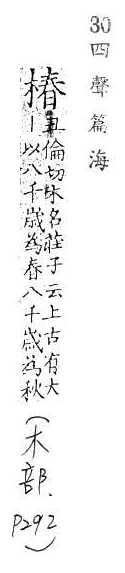 30 四聲篇海
椿
丑倫切木名莊子云上古有大
丨以八千歲為春八千歲為秋
(木部.
P292)